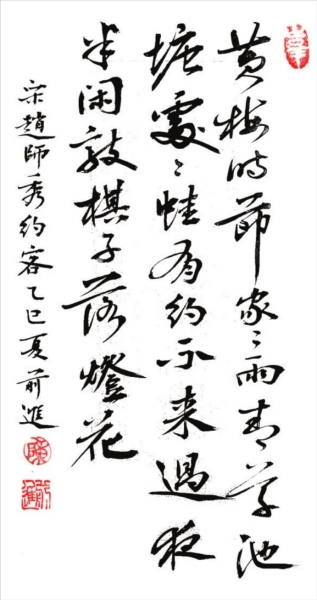 黄梅时節家々雨青草池
塘處々蛙有約不来過夜
半闲敲棋子落燈花
宋趙師秀約客乙巳夏前進